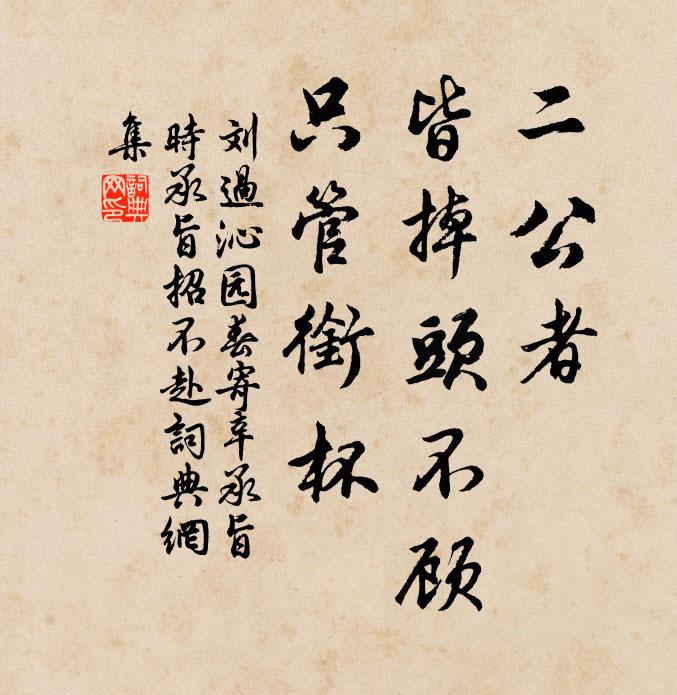 二公者
皆掉頭不顾
只管銜杯
刘過沁园春寄辛承旨
時承旨招不赴詞典網
集
詞典
网印